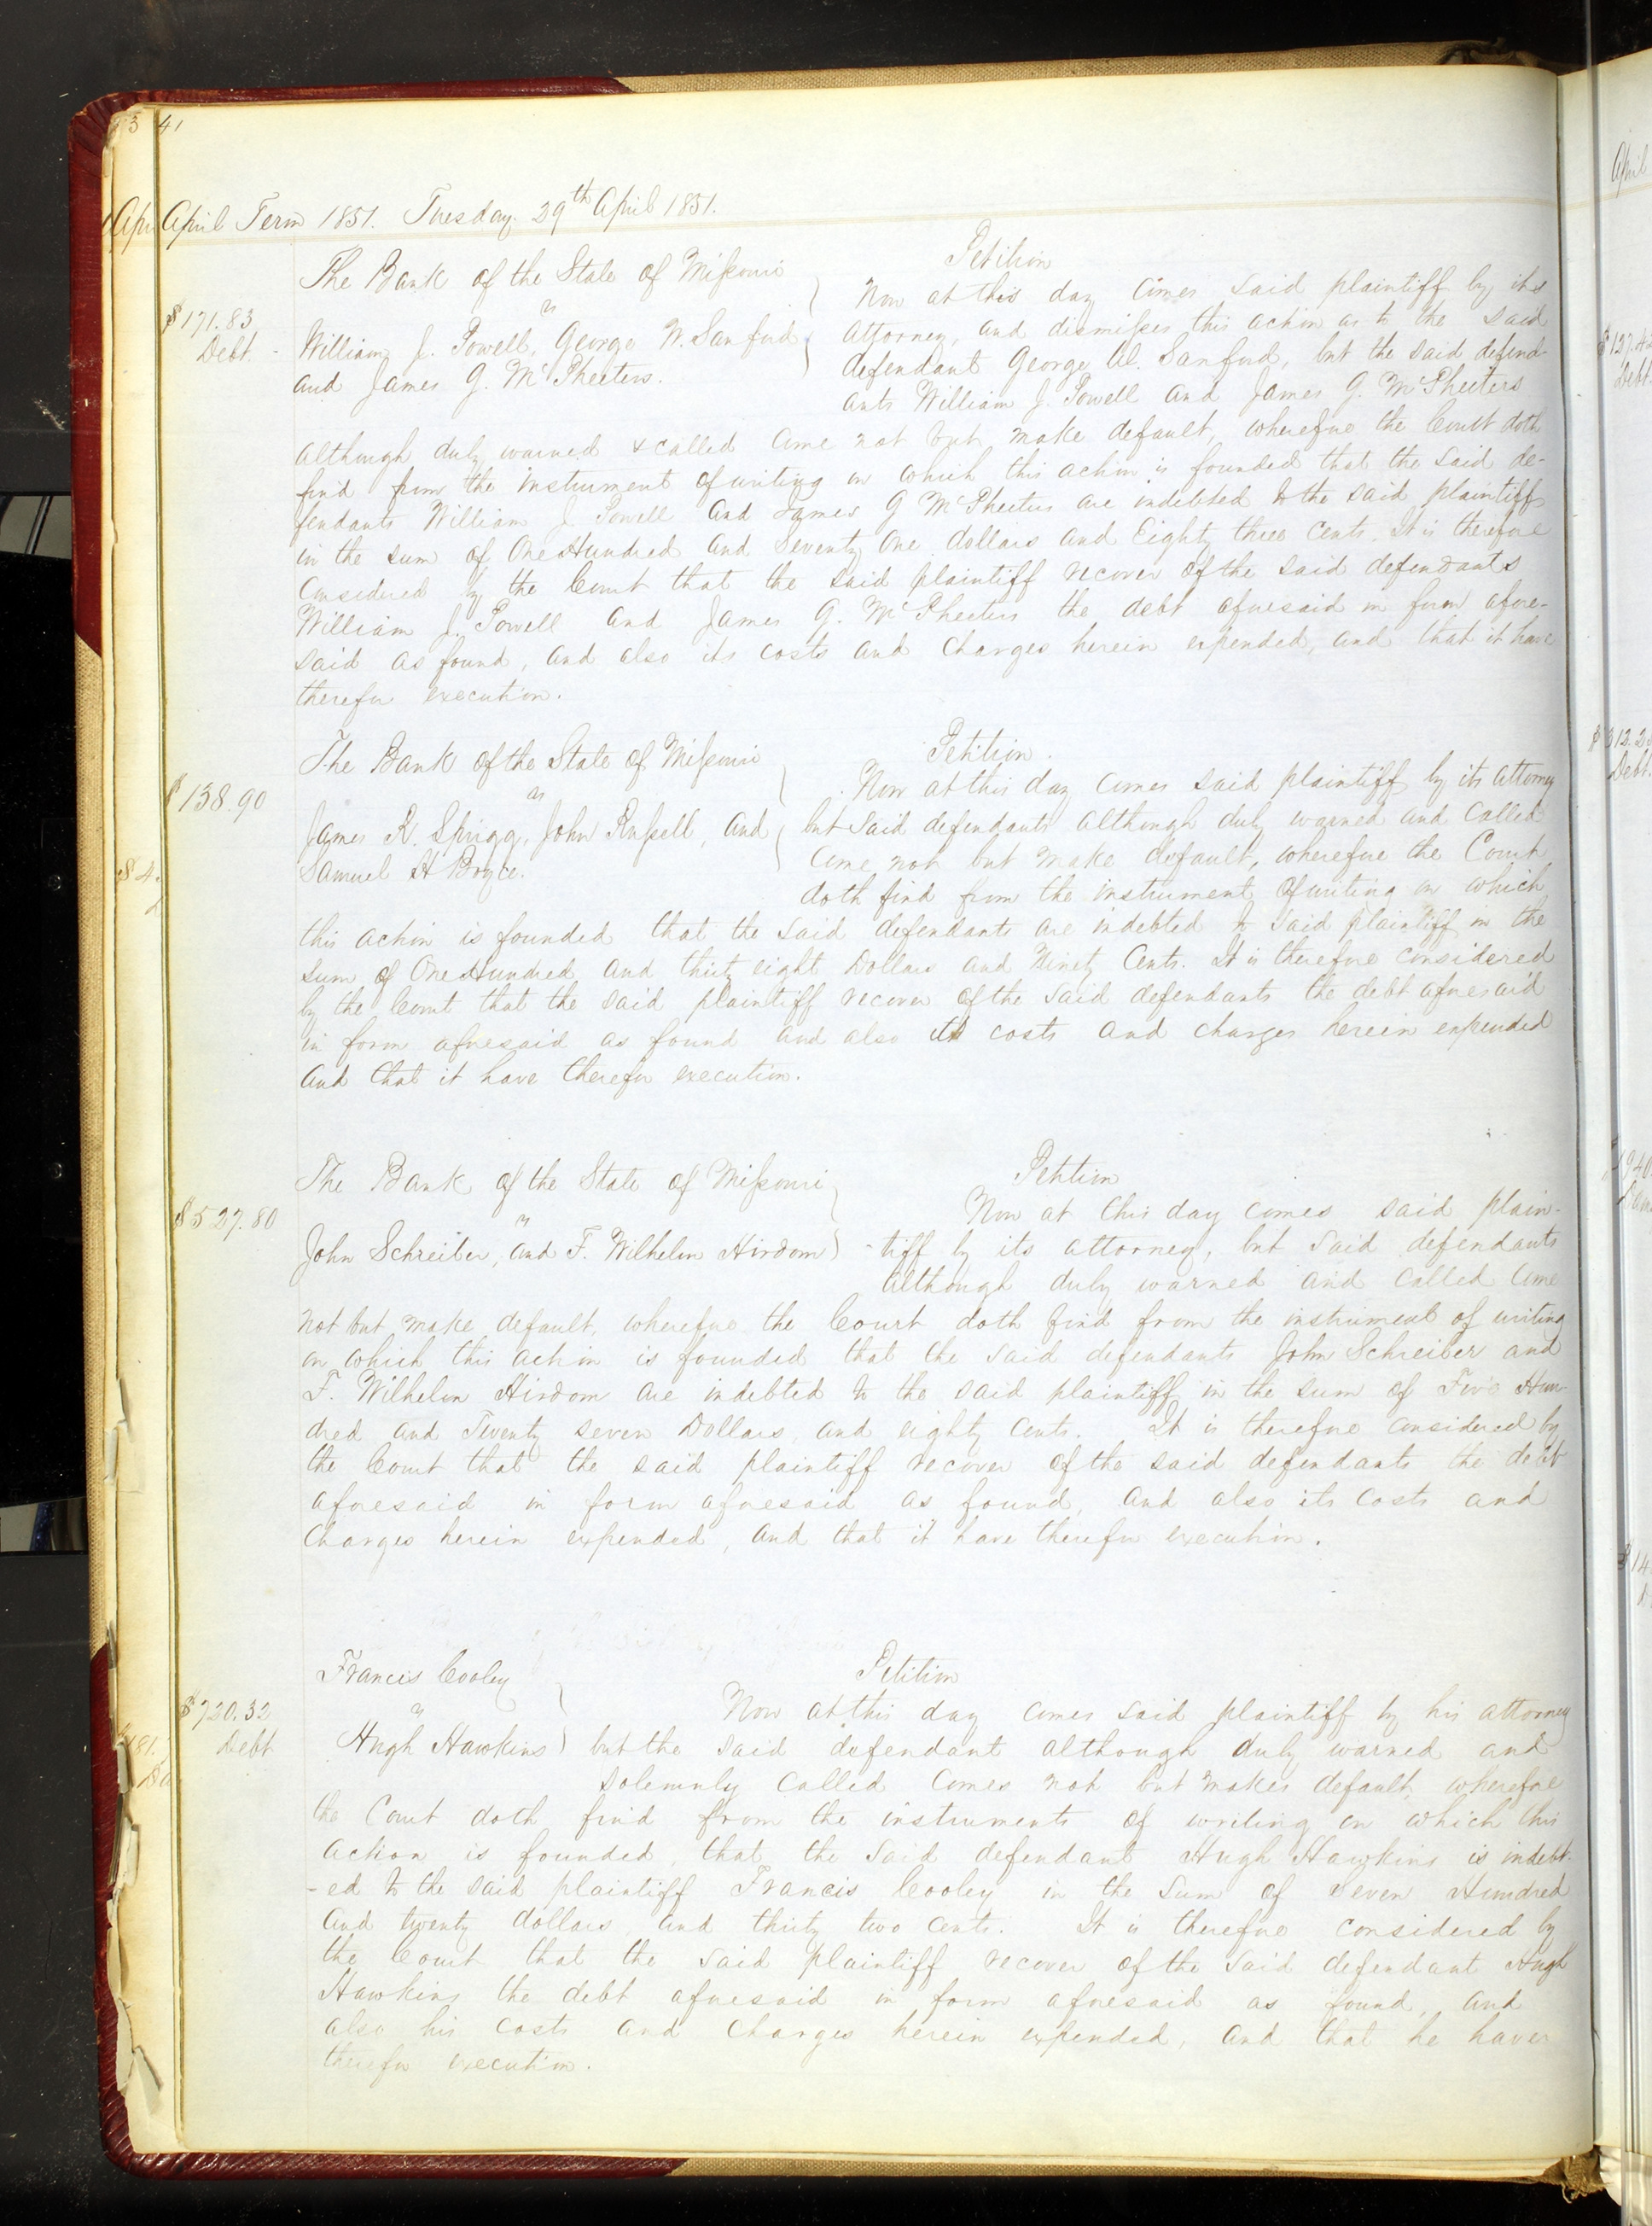 41
April Term 1851. Tuesday 29th April 1851.
The Bank of the State of Missouri
vs
William J. Powell, George W. Sanford
and James G. McPheeters.
$171.83
Debt.
Petition
Now at this day comes said plaintiff by its
attorney, and dismisses this action as to the said
defendant George W. Sanford, but the said defend-
ants William J. Powell and James G. McPheeters
although duly warned & called come not but make default, wherefore the Court doth
find from the instrument of writing on which this action is founded that the said de-
fendants William J. Powell and James G McPheeters are indebted to the said plaintiff
in the sum of One Hundred and Seventy One dollars and Eighty three Cents. It is therefore
considered by the Court that the said plaintiff recover of the said defendants
William J. Powell and James G. McPheeters the debt aforesaid in form afore-
said as found, and also its costs and charges herein expended, and that it have
therefor execution.
The Bank of the State of Missouri
vs
James R. Sprigg, John Russell, and
Samuel H Bryce.
$138.90
Petition.
Now at this day comes said plaintiff by its attorney
but said defendants although duly warned and called
come not but make default, wherefore the Court
doth find from the instrument of writing on which
this action is founded that the said defendants are indebted to said plaintiff in the
sum of One Hundred and thirty eight Dollars and Ninety Cents. It is therefore considered
by the Court that the said plaintiff recover of the said defendants the debt aforesaid
in form aforesaid as found and also its costs and charges herein expended
and that it have therefor execution.
The Bank of the State of Missouri
vs
John Schreiber, and F. Wilhelm Hirdom
$527.80
Petition
Now at this day comes said plain-
-tiff by its attorney, but said defendants
although duly warned and called come
not but make default, wherefore the Court doth find from the instrument of writing
on which this action is founded that the said defendants John Schreiber and
F. Wilhelm Hirdom are indebted to the said plaintiff in the sum of Five Hun-
dred and Twenty seven Dollars, and eighty cents. It is therefore considered by
the Court that the said plaintiff recover of the said defendants the debt
aforesaid in form aforesaid as found, and also its costs and
charges herein expended, and that it have therefor execution.
Francis Cooley
vs
Hugh Hawkins
$720.32
Debt
Petition
Now at this day comes said plaintiff by his attorney
but the said defendant although duly warned and
solemnly called comes not but makes default, wherefore
the Court doth find from the instruments of writing on which this
action is founded, that the said defendant Hugh Hawkins is indebt-
-ed to the said plaintiff Francis Cooley in the sum of Seven Hundred
and twenty dollars, and thirty two cents. It is therefore considered by
the Court that the said plaintiff recover of the said defendant Hugh
Hawkins the debt aforesaid in form aforesaid as found, and
also his costs and charges herein expended, and that he have
therefor execution.